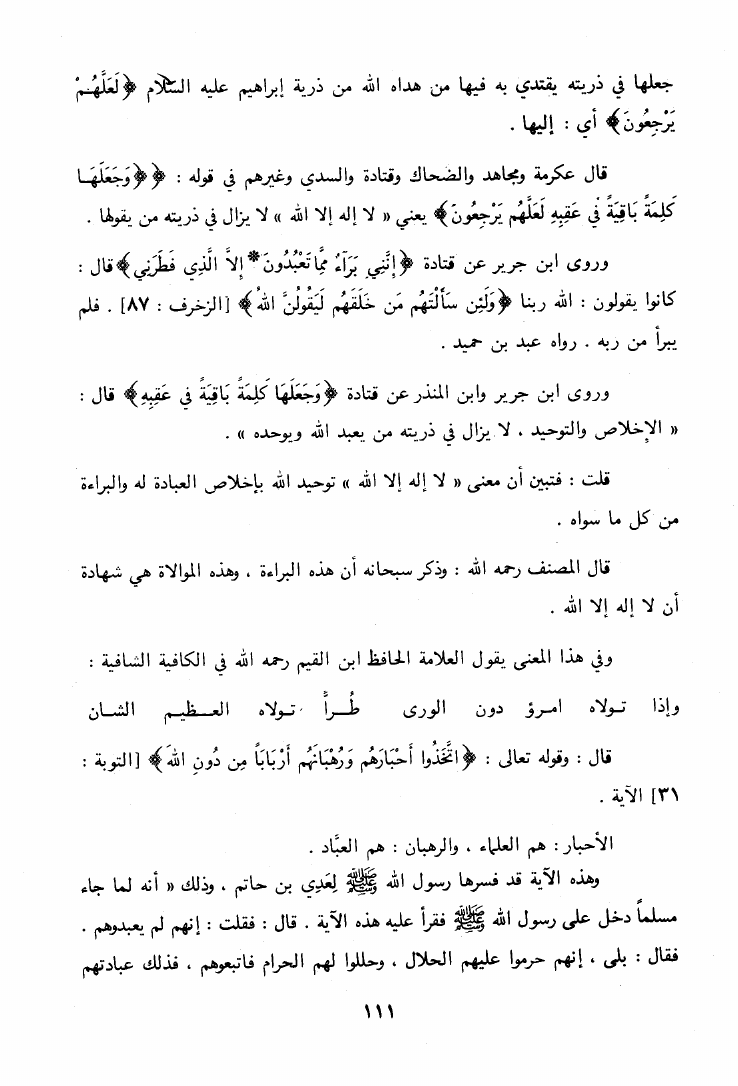 جعلها في ذريته يقتدي به فيها من هداه الله من ذرية إبراهيم عليه السلام ﴿لَعَلَّهُمْ
يَرْجِعُونَ﴾ أي : إليها .
قال عكرمة ومجاهد والضحاك وقتادة والسدي وغيرهم في قوله : ﴿ ﴿وَجَعَلَهَا
كَلِمَةً بَاقِيَةً فِي عَقِبِهِ لَعَلَّهُم يَرْجِعُونَ﴾ يعني « لا إله إلا الله » لا يزال في ذريته من يقولها .
وروى ابن جرير عن قتادة ﴿إِنَّنِي بَرَآءٌ مِّمَّا تَعْبُدُونَ * إِلاَّ الَّذِي فَطَرَنِي﴾ قال :
كانوا يقولون : الله ربنا ﴿وَلَئِن سَأَلْتَهُم مَن خَلَقَهُم لَيَقُولُنَّ اللهُ﴾ [الزخرف : ٨٧] . فلم
يبرأ من ربه . رواه عبد بن حميد .
وروى ابن جرير وابن المنذر عن قتادة ﴿وَجَعَلَهَا كَلِمَةً بَاقِيَةً في عَقِبِهِ﴾ قال :
« الإخلاص والتوحيد ، لا يزال في ذريته من يعبد الله ويوحده » .
قلت : فتبين أن معنى « لا إله إلا الله » توحيد الله بإخلاص العبادة له والبراءة
من كل ما سواه .
قال المصنف رحمه الله : وذكر سبحانه أن هذه البراءة ، وهذه الموالاة هي شهادة
أن لا إله إلا الله .
وفي هذا المعنى يقول العلامة الحافظ ابن القيم رحمه الله في الكافية الشافية :
وإذا تولاه امرؤ دون الورى طُـراً تولاه العظيم الشان
قال : وقوله تعالى : ﴿اتَّخَذُوا أَحْبَارَهُم وَرُهْبَانَهُم أَرْبَابَاً مِن دُونِ اللهِ﴾ [التوبة :
٣١] الآية .
الأحبار : هم العلماء ، والرهبان : هم العبَّاد .
وهذه الآية قد فسرها رسول الله ﷺ لِعَدِي بن حاتم ، وذلك « أنه لما جاء
مسلماً دخل على رسول الله ﷺ فقرأ عليه هذه الآية . قال : فقلت : إنهم لم يعبدوهم .
فقال : بلى ، إنهم حرموا عليهم الحلال ، وحللوا لهم الحرام فاتبعوهم ، فذلك عبادتهم
١١١